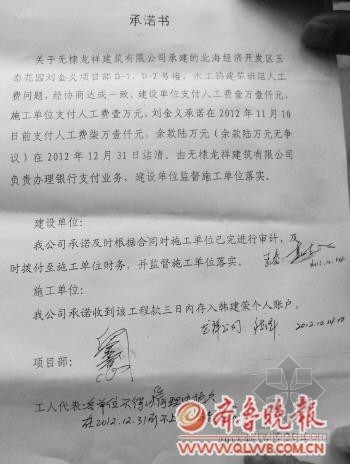 承诺书
关于无棣龙祥建筑有限公司承建的北海经济开发区玉
泰花园刘金义项目部D-1、D-2号楼，木工韩建荣班组人工
费问题，经协商达成一致，建设单位支付人工费壹万壹仟元、
施工单位支付人工费壹万元，刘金义承诺在2012年11月10
日前支付人工费柒万壹仟元，余款陆万元（余款陆万元无争
议）在2012年12月31日结清。由无棣龙祥建筑有限公司
负责办理银行支付业务，建设单位监督施工单位落实。
建设单位：
我公司承诺及时根据合同对施工单位已完进行审计，及
时拨付至施工单位财务，并监督施工单位落实。
2012.10.24
施工单位：
我公司承诺收到该工程款三日内存入韩建荣个人账户。
龙祥公司 2012.10.24
项目部：
工人代表：各单位不得以
在2012.12.31前不上
齐鲁晚报
WWW.QLWB.COM.CN